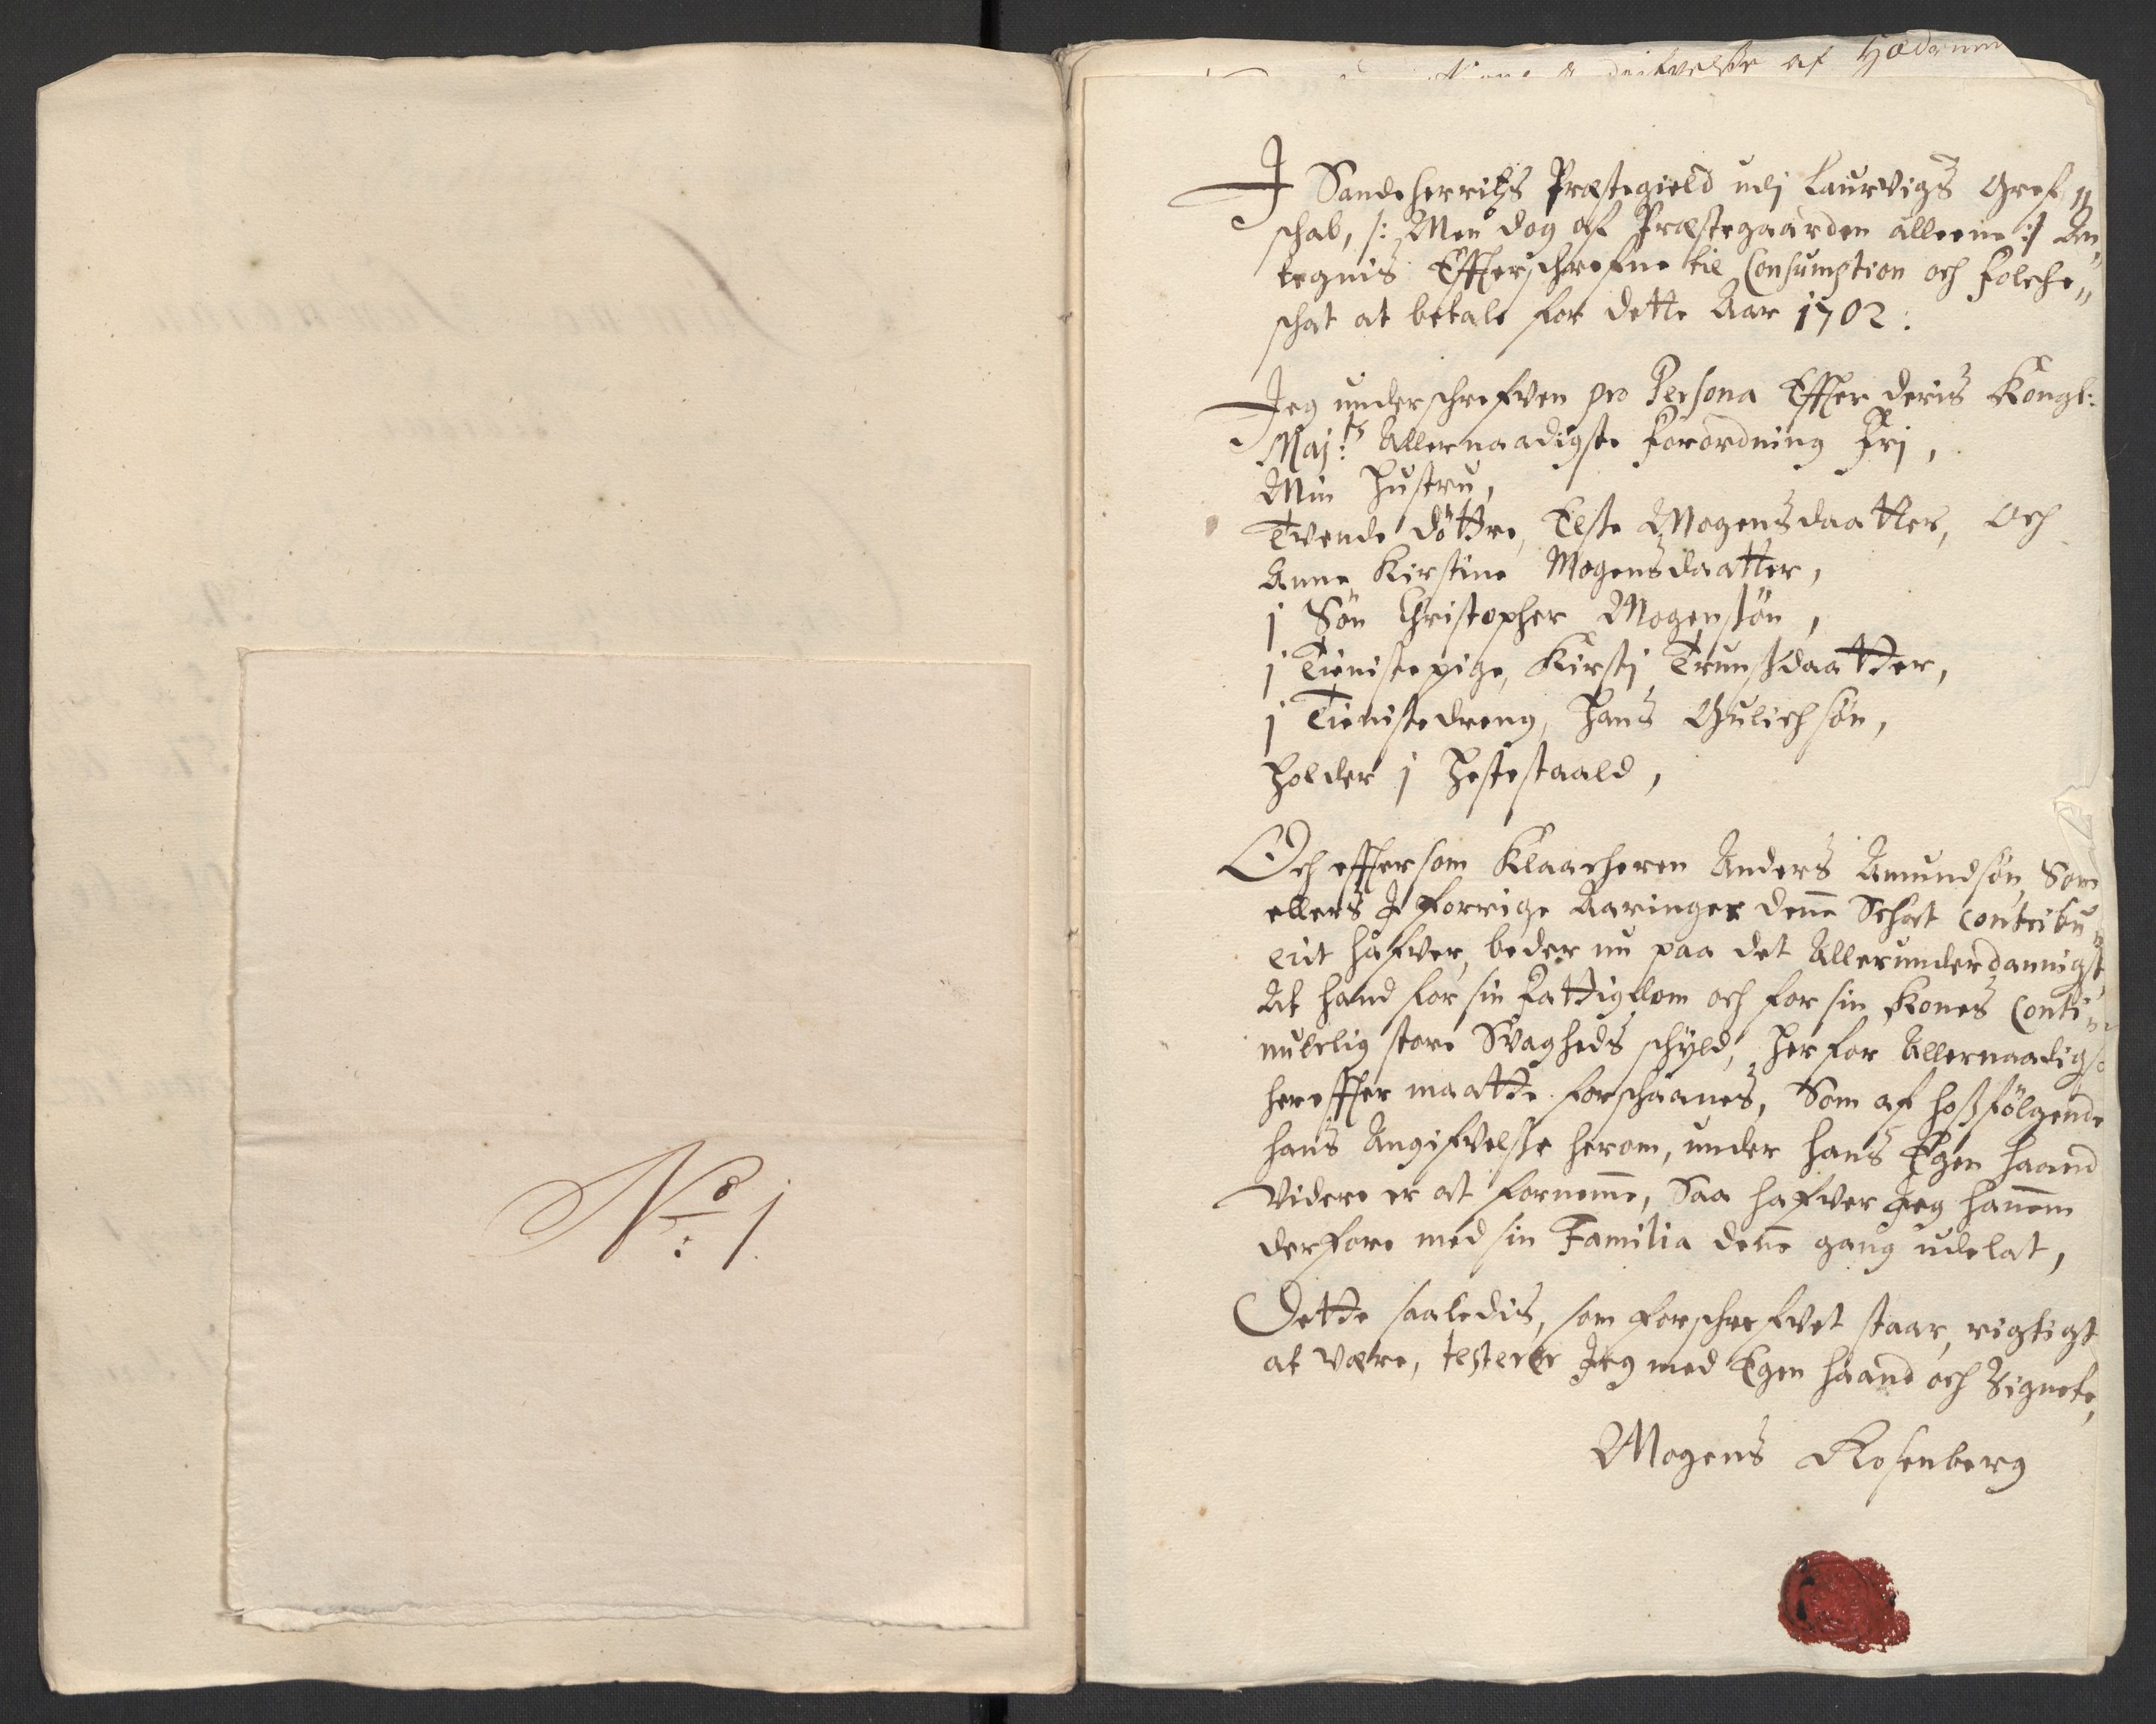 No: 1.
af Hedrum
I Sandeherritz Præstegield udj Laurvigs Gref„
schab, /: Men dog af Præstegaarden alleene :/ An„
tegnis Effterschrefne til Consumption och Folche„
schat at betale for dette Aar 1702:
Jeg underschrefven pro Persona Effter deris Kongl:
Maj:ts Allernaadigste Forordning Frj,
Min Hustru,
Tvende döttre, Else Mogensdaatter, Och
Anne Kirstine Mogensdaatter,
j Sön Christopher Mogensön,
j Tienistepige, Kirstj Trunsdaatter,
j Tienistedreng, Hans Gulichsön,
Holder j Hestestaald,
Och effter som Klaacheren Anders Amundsön, Som
ellers J forrige Aaringer denne Schat contribu„
erit hafver, beder nu paa det Allerunderdannigst
At hand for sin Fattigdom och for sin Kones Conti„
nuerlig store Svagheds schyld, her for Allernaadigst
hereffter maatte forschaanes, Som af hosfölgende
hans Angifvelse herom, under hans Egen haand
Videre er at fornemme, Saa hafver Jeg hannem
derfore med sin Familia denne gang udelat,
Dette saaledis, som forschrefvet staar, rigtigt
at være, testerer Jeg med Egen haand och Zignete,
Mogens Rosenberg